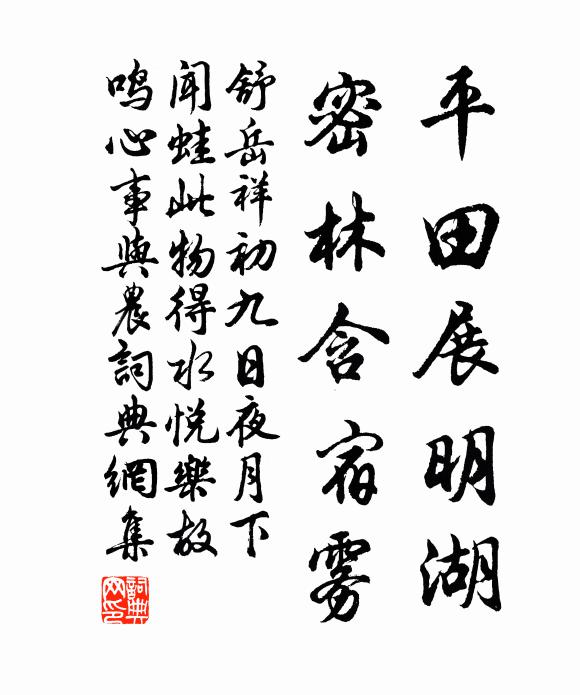 平田展明湖
密林含宿雾
舒岳祥初九日夜月下
闻蛙此物得水悦樂故
鸣心事與農詞典網集
詞典网印